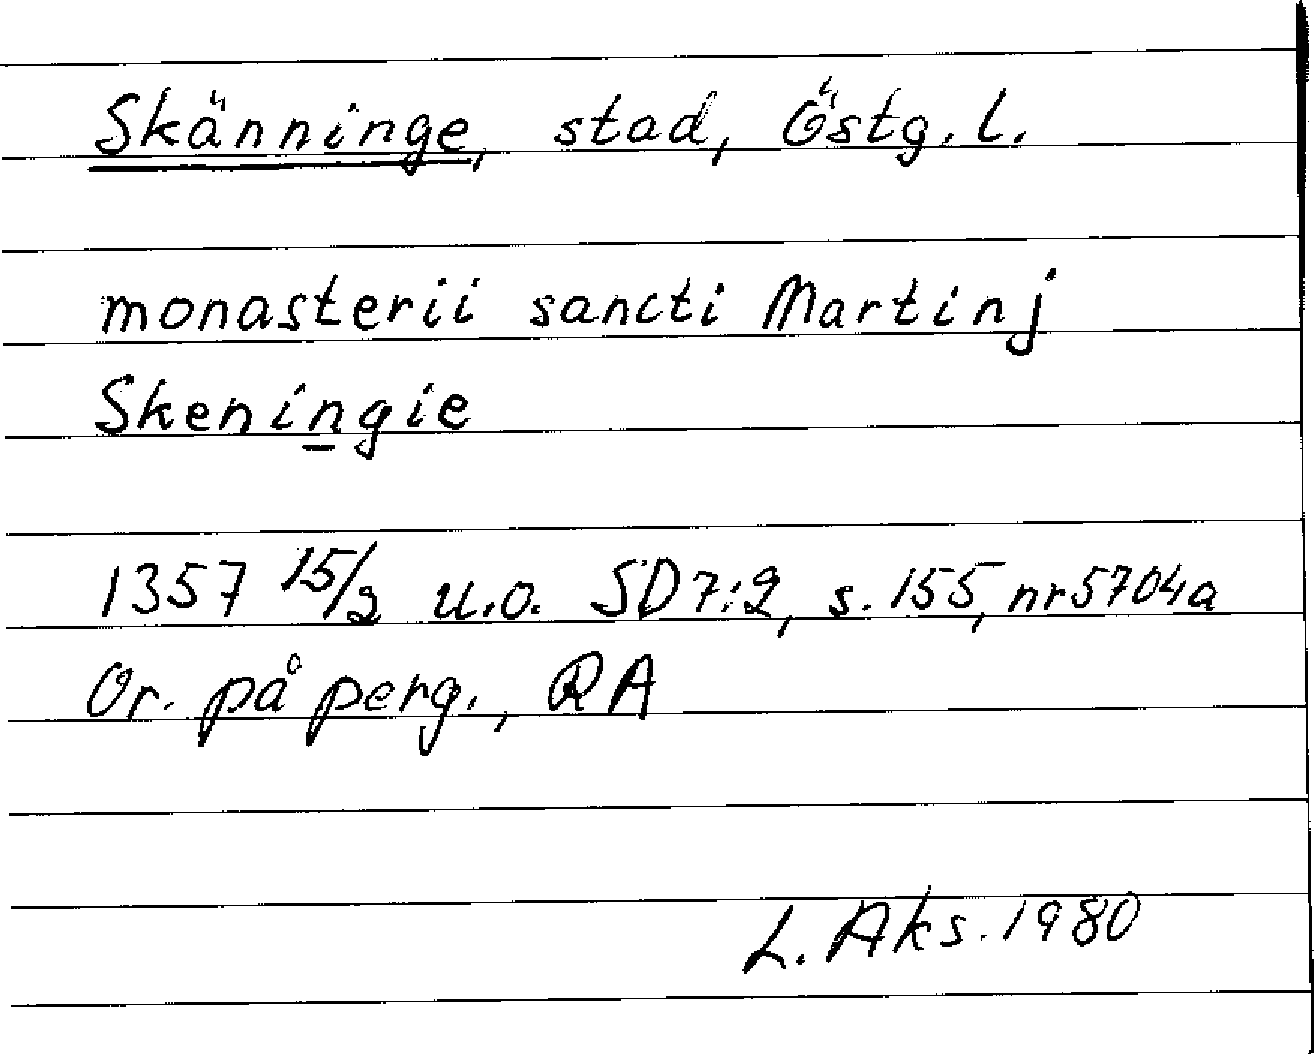 Skänninge, stad, Östg. l.
monasterii sancti Martinj
Skeningie
1357 15/2 u.o. SD 7:2, s. 155, nr 5704a
Or. på perg., RA
L. Aks. 1980